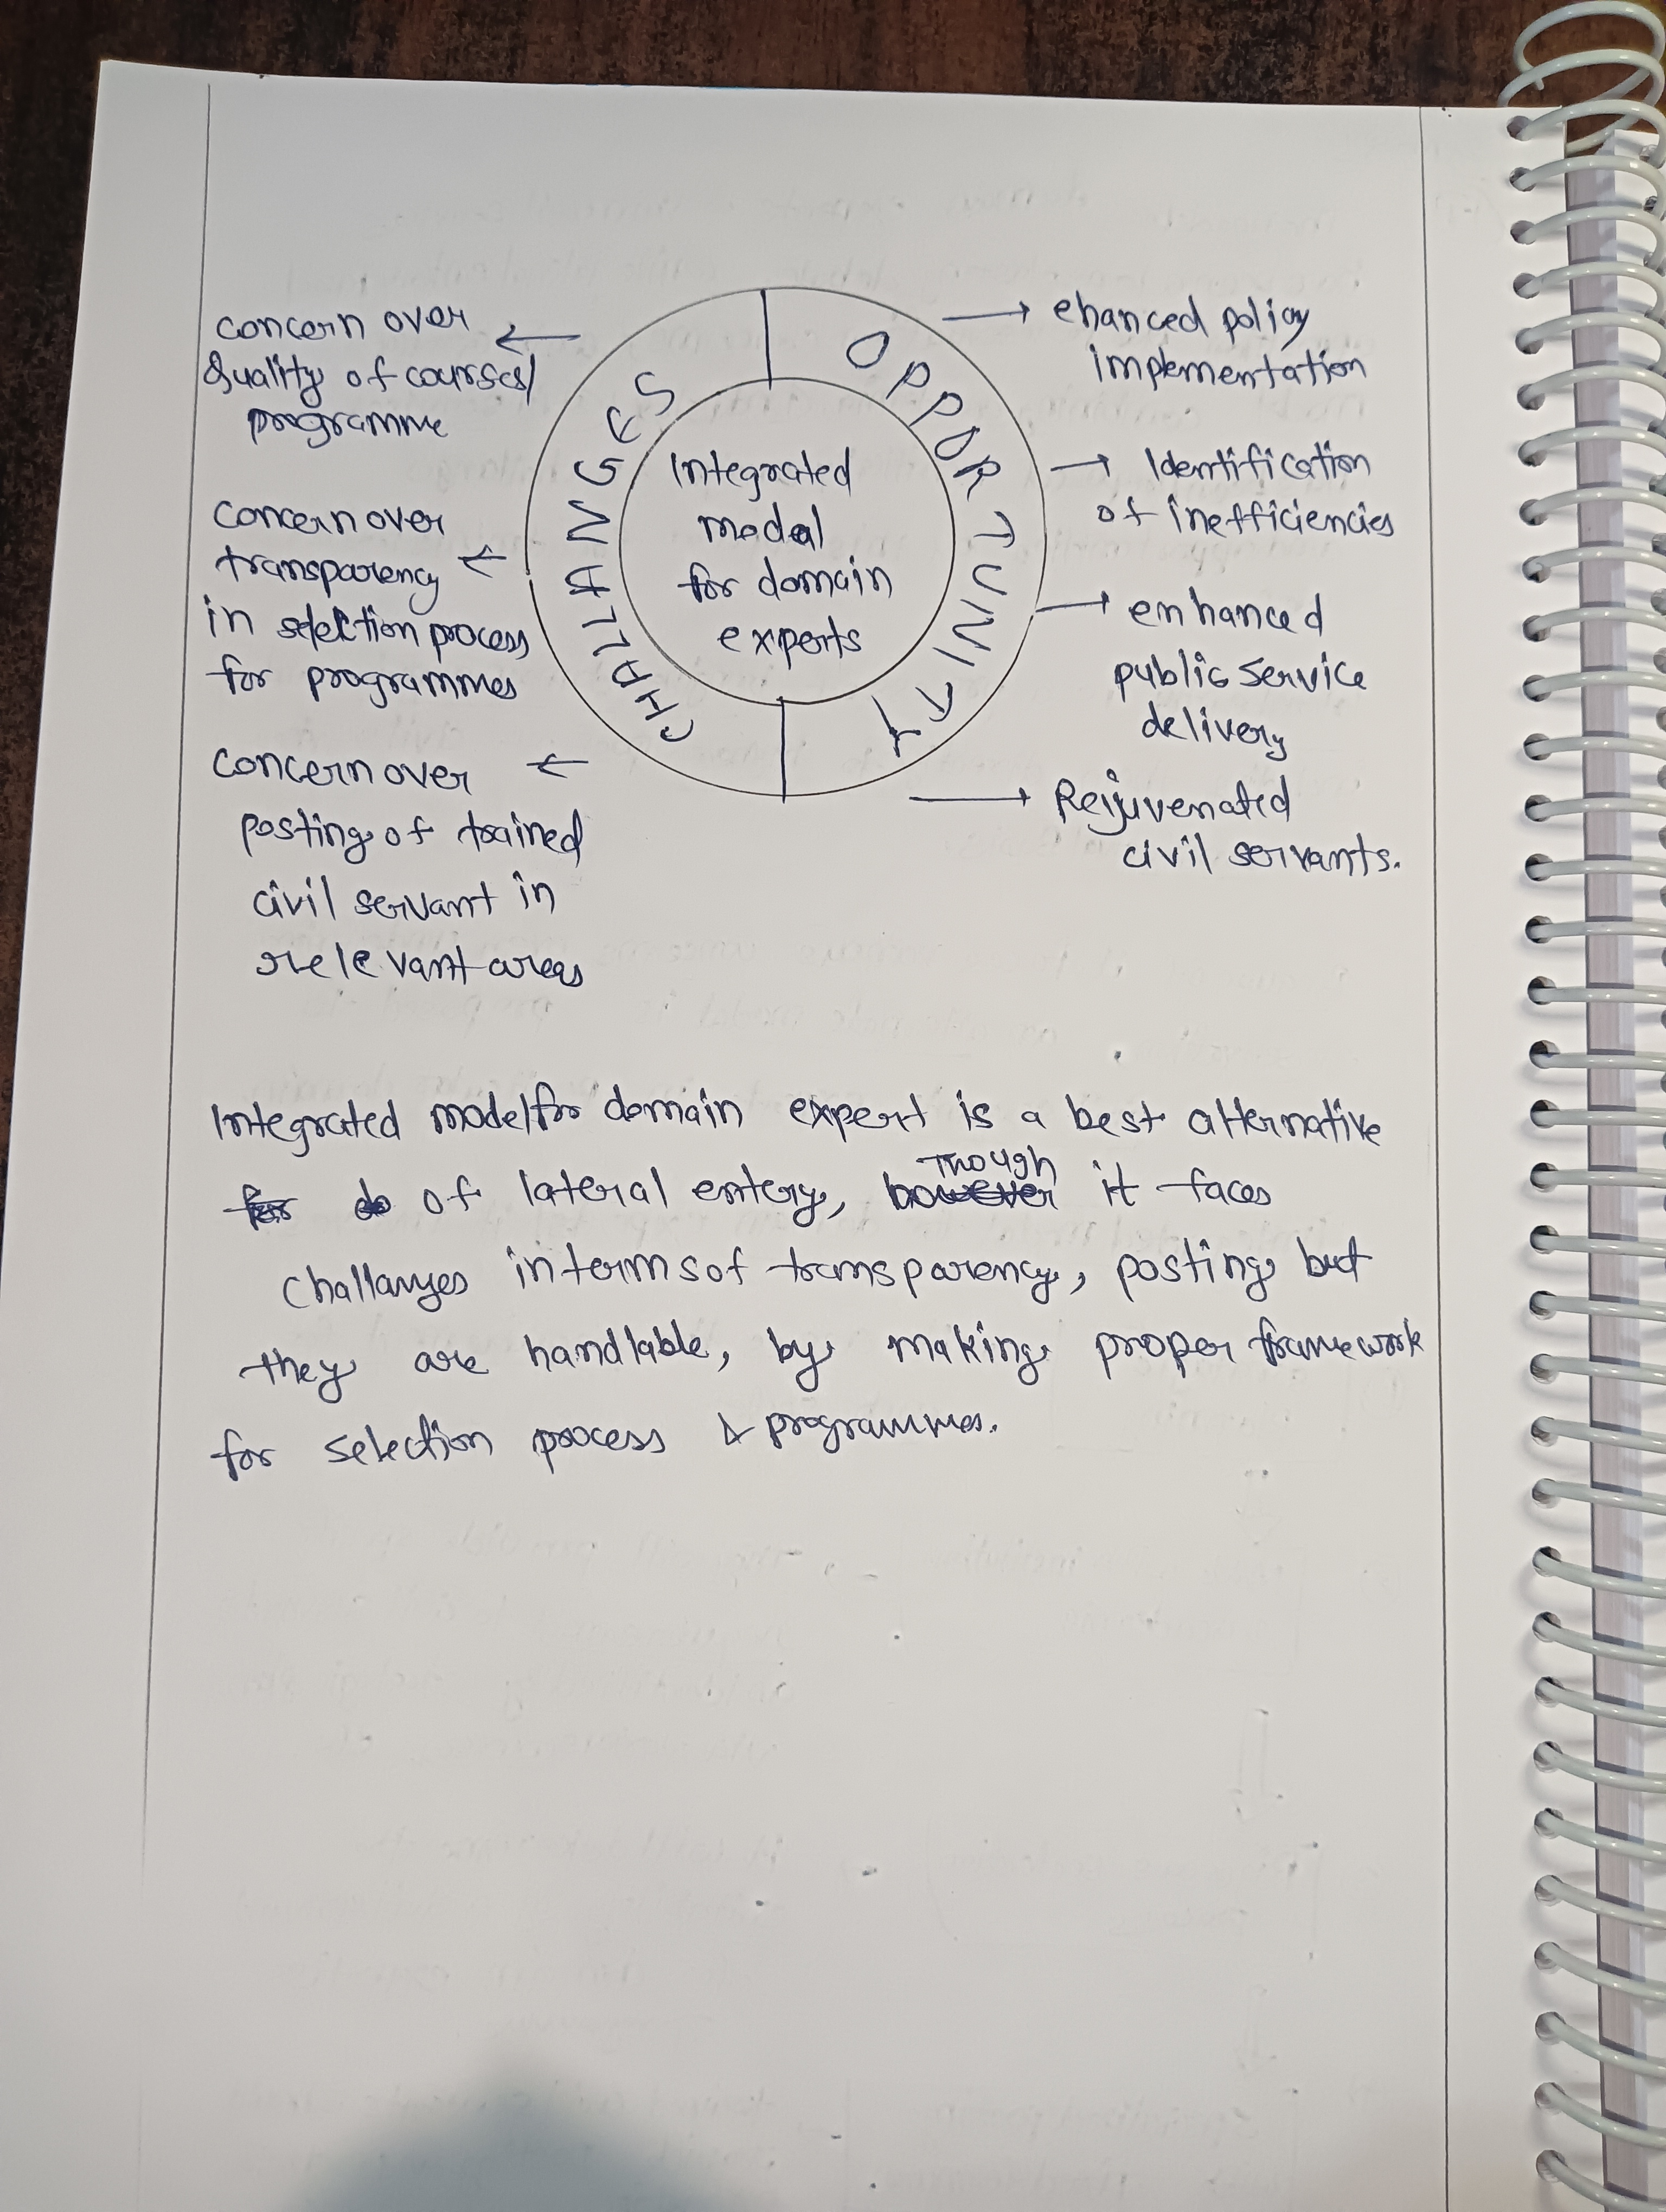 concern over
Quality of courses/
programme
concern over
transparency
in selection process
for programmes
concern over
posting of trained
civil servant in
relevant areas
CHALLANGES
Integrated
model
for domain
experts
OPPORTUNITY
ehanced policy
implementation
Identification
of inefficiencies
enhanced
public service
delivery
Rejuvenated
civil servants.
Integrated model for domain expert is a best alternative
of lateral entery, Though it faces
challanges in terms of transparency, posting but
they are handlable, by making proper framework
for selection process & programmes.